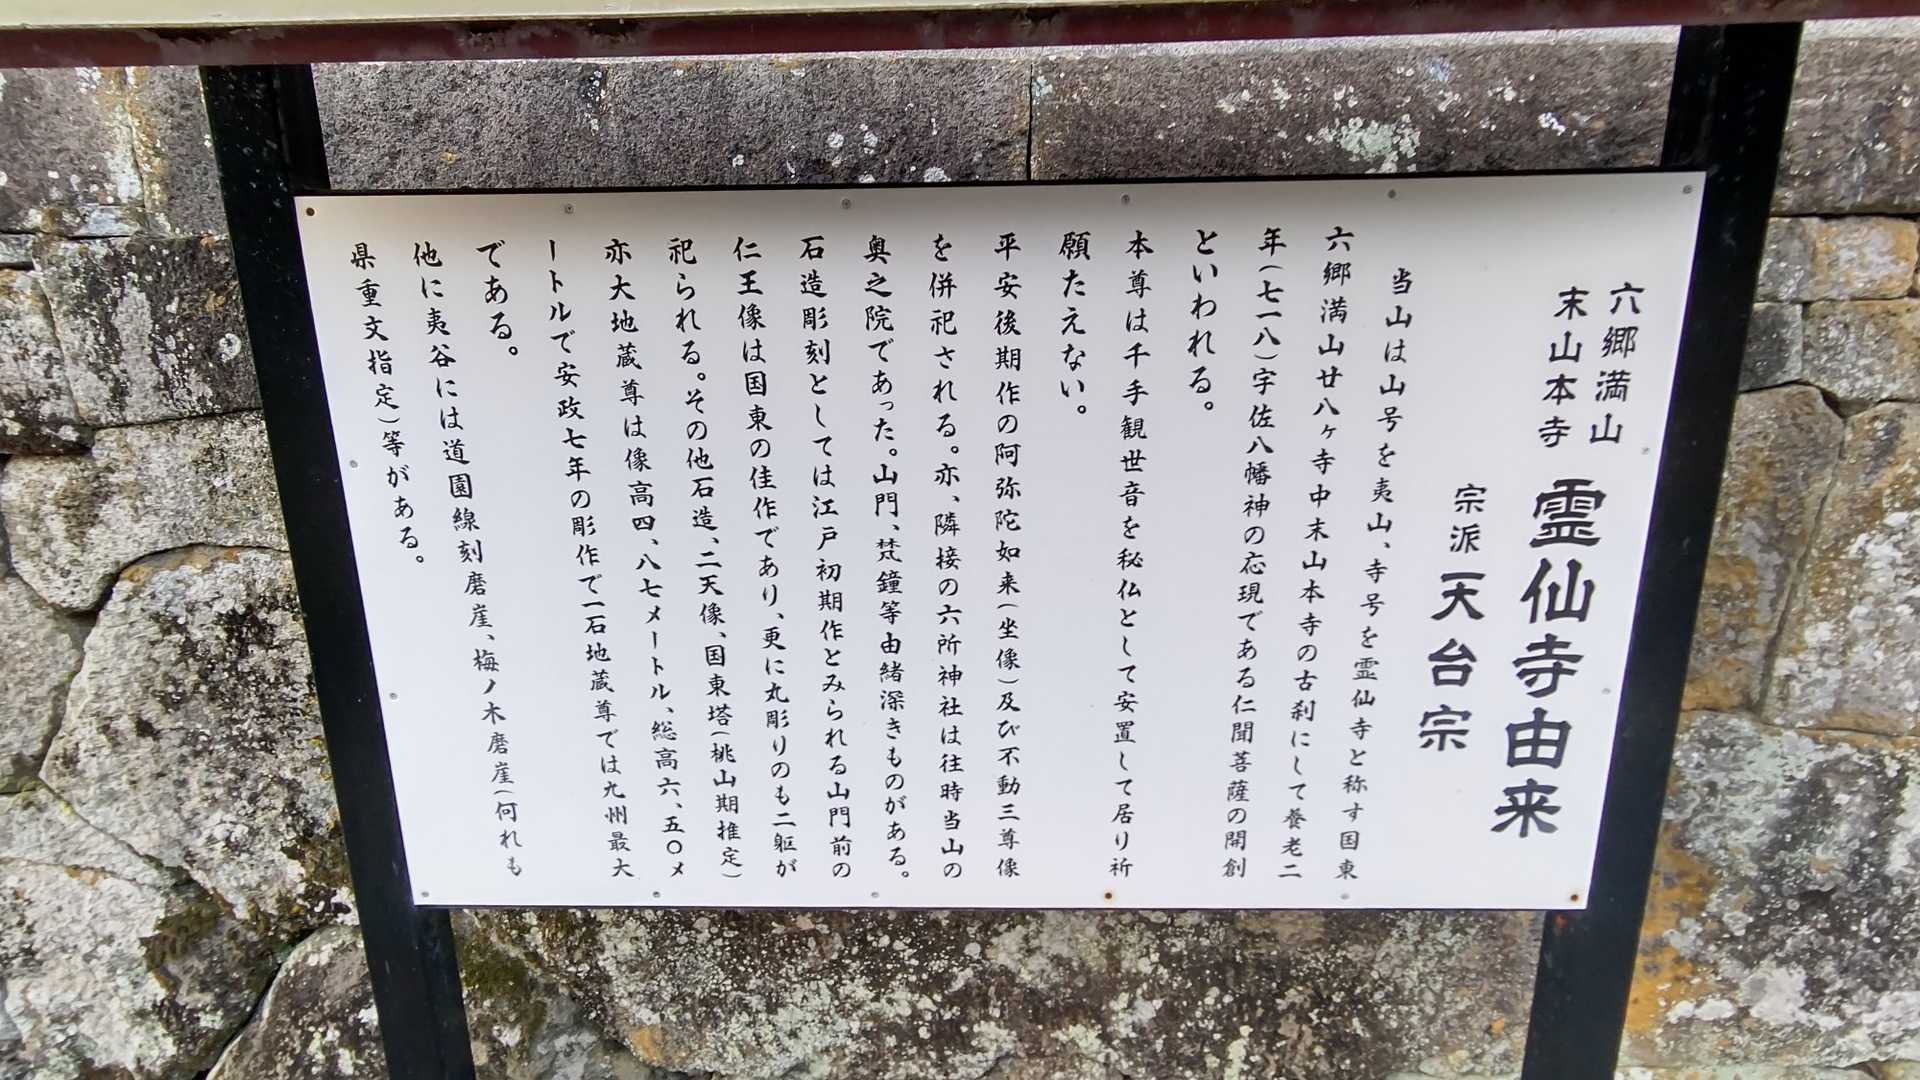 六郷満山
末山本寺
霊仙寺由来
宗派 天台宗
当山は山号を夷山、寺号を霊仙寺と称す国東
六郷満山廿八ヶ寺中末山本寺の古刹にして養老二
年(七一八)宇佐八幡神の応現である仁聞菩薩の開創
といわれる。
本尊は千手観世音を秘仏として安置して居り祈
願たえない。
平安後期作の阿弥陀如来(坐像)及び不動三尊像
を併祀される。亦、隣接の六所神社は往時当山の
奥之院であった。山門、梵鐘等由緒深きものがある。
石造彫刻としては江戸初期作とみられる山門前の
仁王像は国東の佳作であり、更に丸彫りのも二躯が
祀られる。その他石造、二天像、国東塔(桃山期推定)
亦大地蔵尊は像高四、八七メートル、総高六、五〇メ
ートルで安政七年の彫作で一石地蔵尊では九州最大
である。
他に夷谷には道園線刻磨崖、梅ノ木磨崖(何れも
県重文指定)等がある。